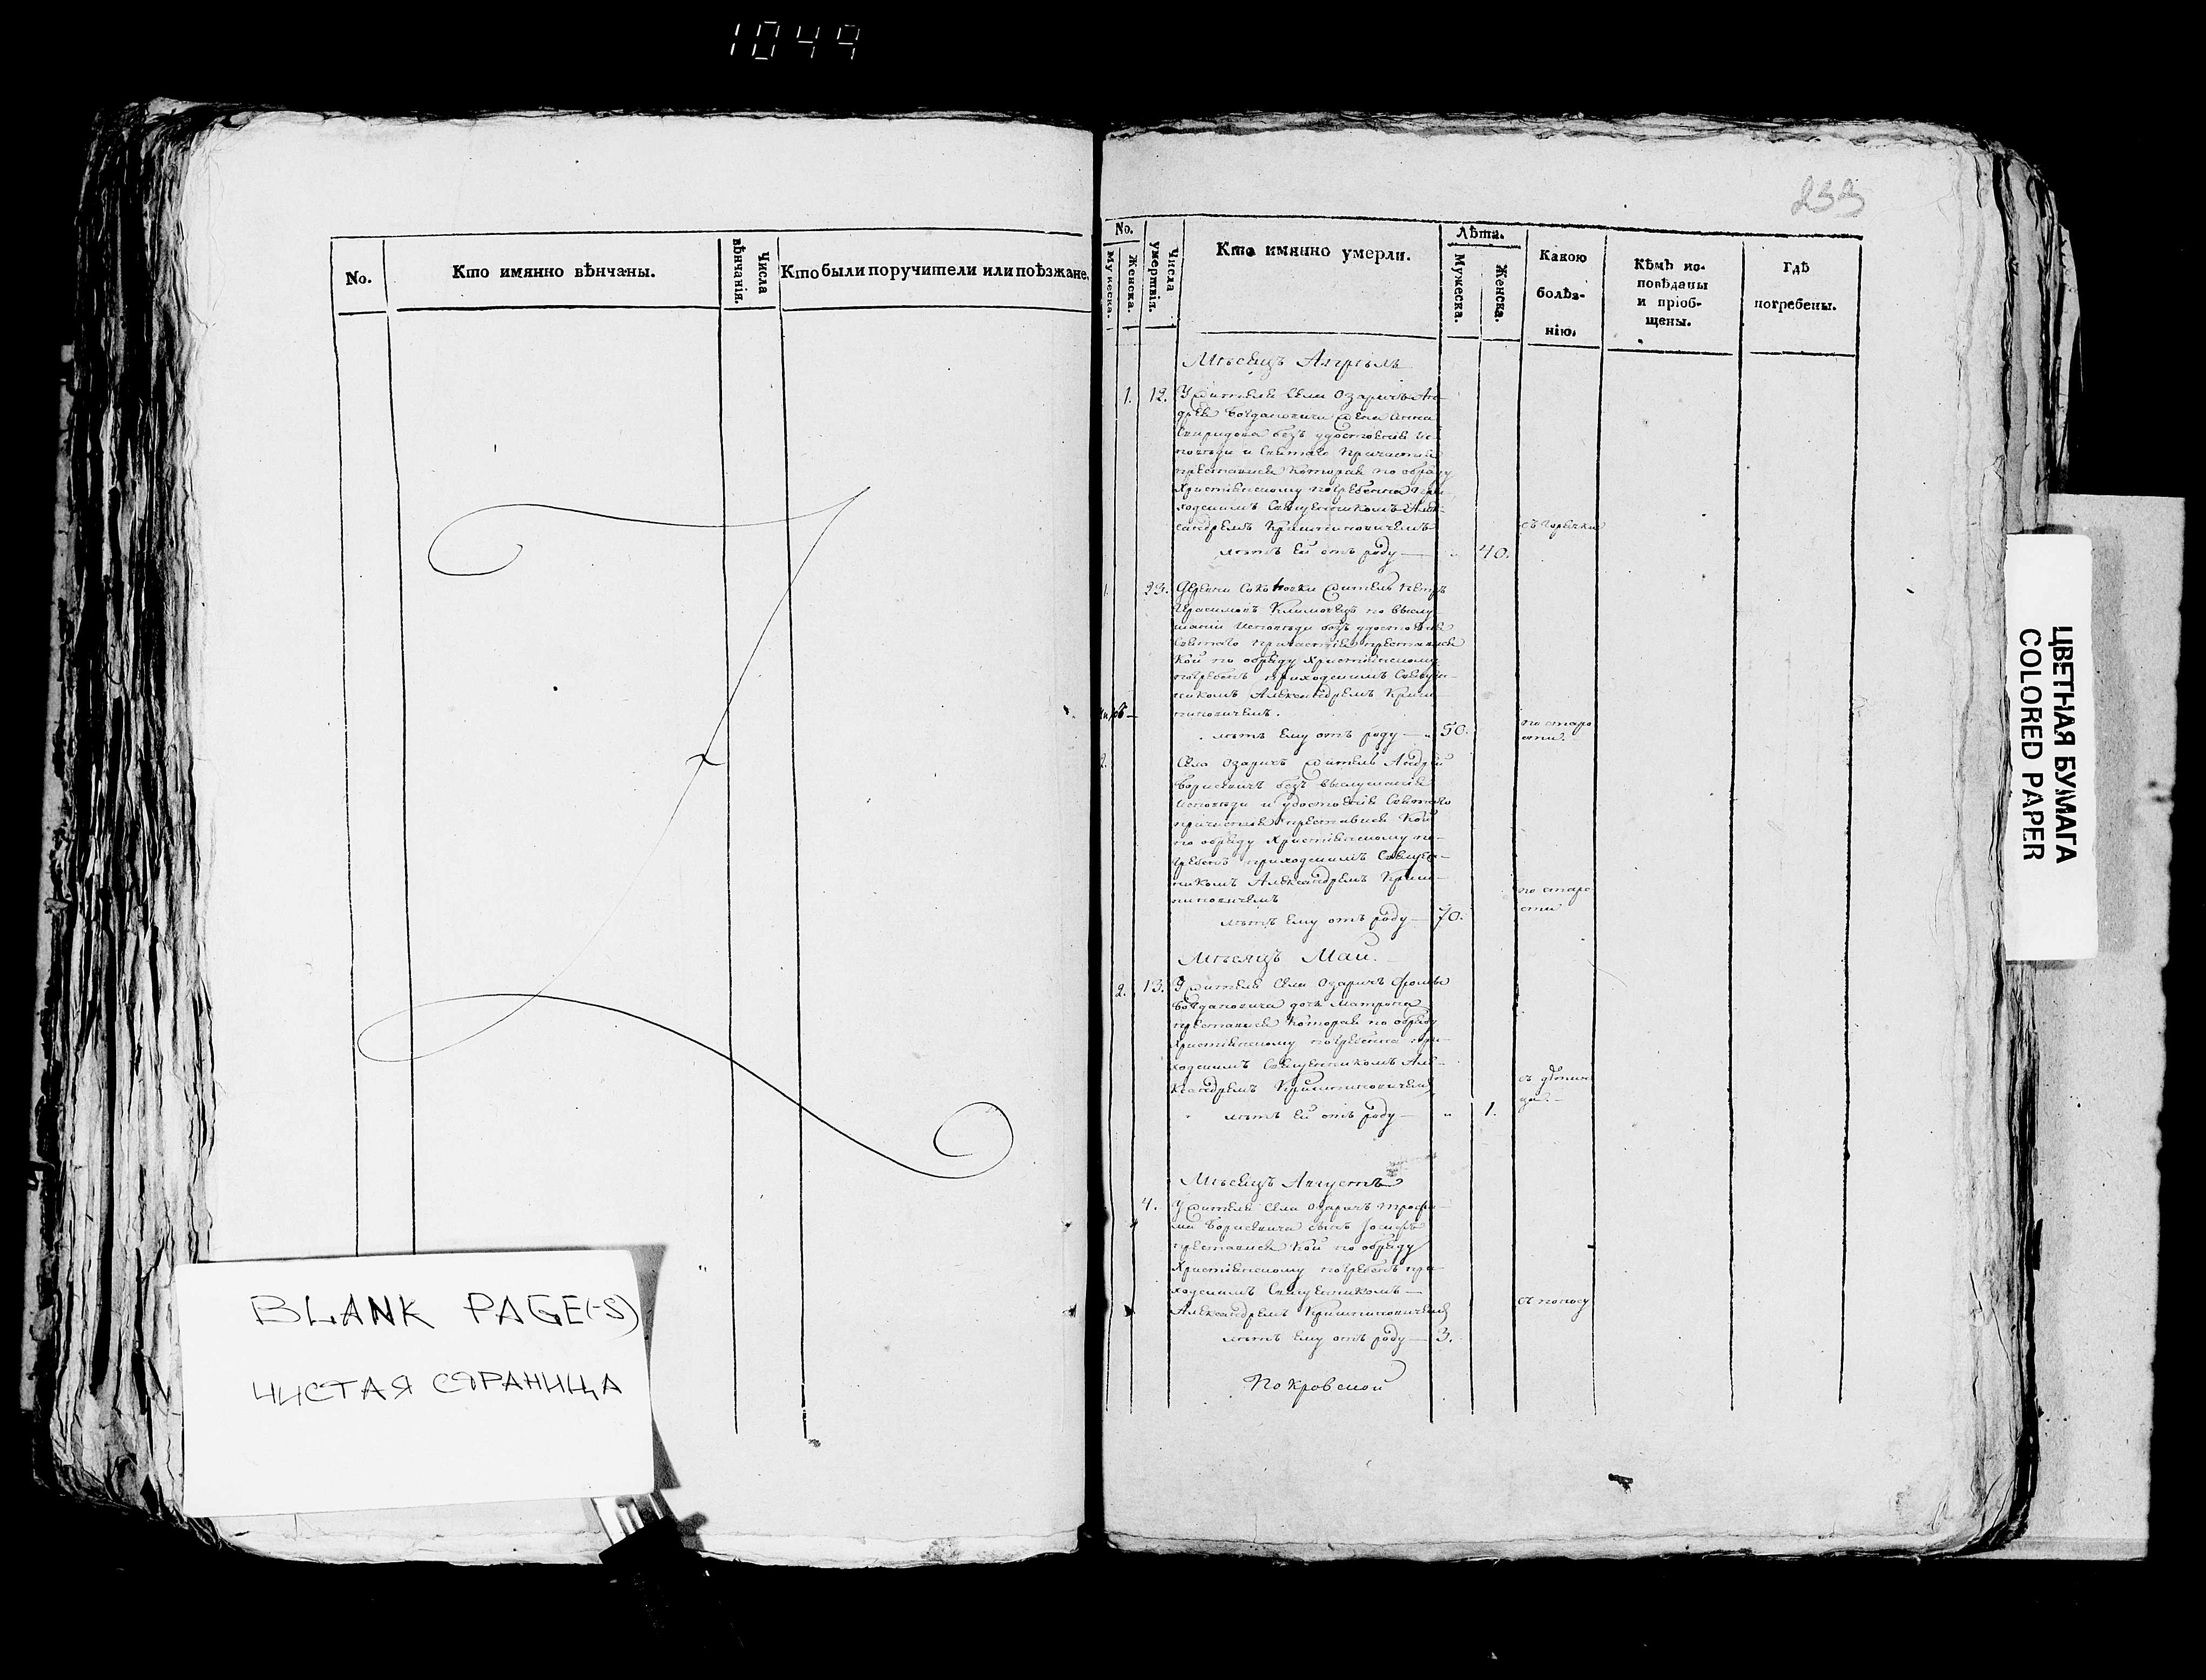 1049
No.
Кто имянно вѣнчаны.
Числа
вѣнчанія.
Кто были поручители или поѣзжане.
BLANK PAGE(-S)
ЧИСТАЯ СТРАНИЦА
233
No.
Мужеска.
Женска.
Числа
умертвія.
Кто имянно умерли.
Лѣта.
Мужеска.
Женска.
Какою
болѣз-
нію.
Кѣмъ ис-
повѣданы
и пріоб-
щены.
Гдѣ
погребены.
Мѣсяцъ Апрѣль
1. 12. У жителя села Озаричъ Ан-
дрея Богдановича жена Анна
Спиридова безъ удостоенія ис-
повѣди и Святаго Причастія
преставися которая по обряду
христіянскому погребенна при-
ходскимъ Священникомъ Алек-
сандремъ
съ горячки
лѣтъ Ей отъ роду — 40.
1. 23. Деревни житель Петръ
Герасимовъ Климовецъ по выслу-
шаніи Исповѣди безъ удостоенія
Святаго Причастія преставися
Кой по обряду Христіянскому
погребенъ приходскимъ Священ-
никомъ Александремъ
лѣтъ Ему отъ роду — 50.
по старо
сти.
2. Села Озаричъ житель Андрей
Борисевичъ безъ выслушанія
Исповѣди и удостоенія Святаго
причастія преставися Кой
по обряду Христіянскому по-
гребенъ приходскимъ Священ-
никомъ Александремъ
по старо
сти
лѣтъ Ему отъ роду — 70.
Мѣсяцъ Маи.
2. 13. У жителя Села Озаричъ Фомы
Богдановича дочь Матрона
преставися Которая по обряду
Христіянскому погребенна при-
ходскимъ Священникомъ Але-
ксандремъ
съ
лѣтъ Ей отъ роду — 1.
Мѣсяцъ Августъ
4. У жителя Села Озаричъ Трофи-
ма Борисевича сынъ Іосифъ
преставися Кой по обряду
Христіянскому погребенъ при-
ходскимъ Священникомъ —
Александремъ
съ поносу
лѣтъ Ему отъ роду — 3.
Покровской
ЦВЕТНАЯ БУМАГА
COLORED PAPER